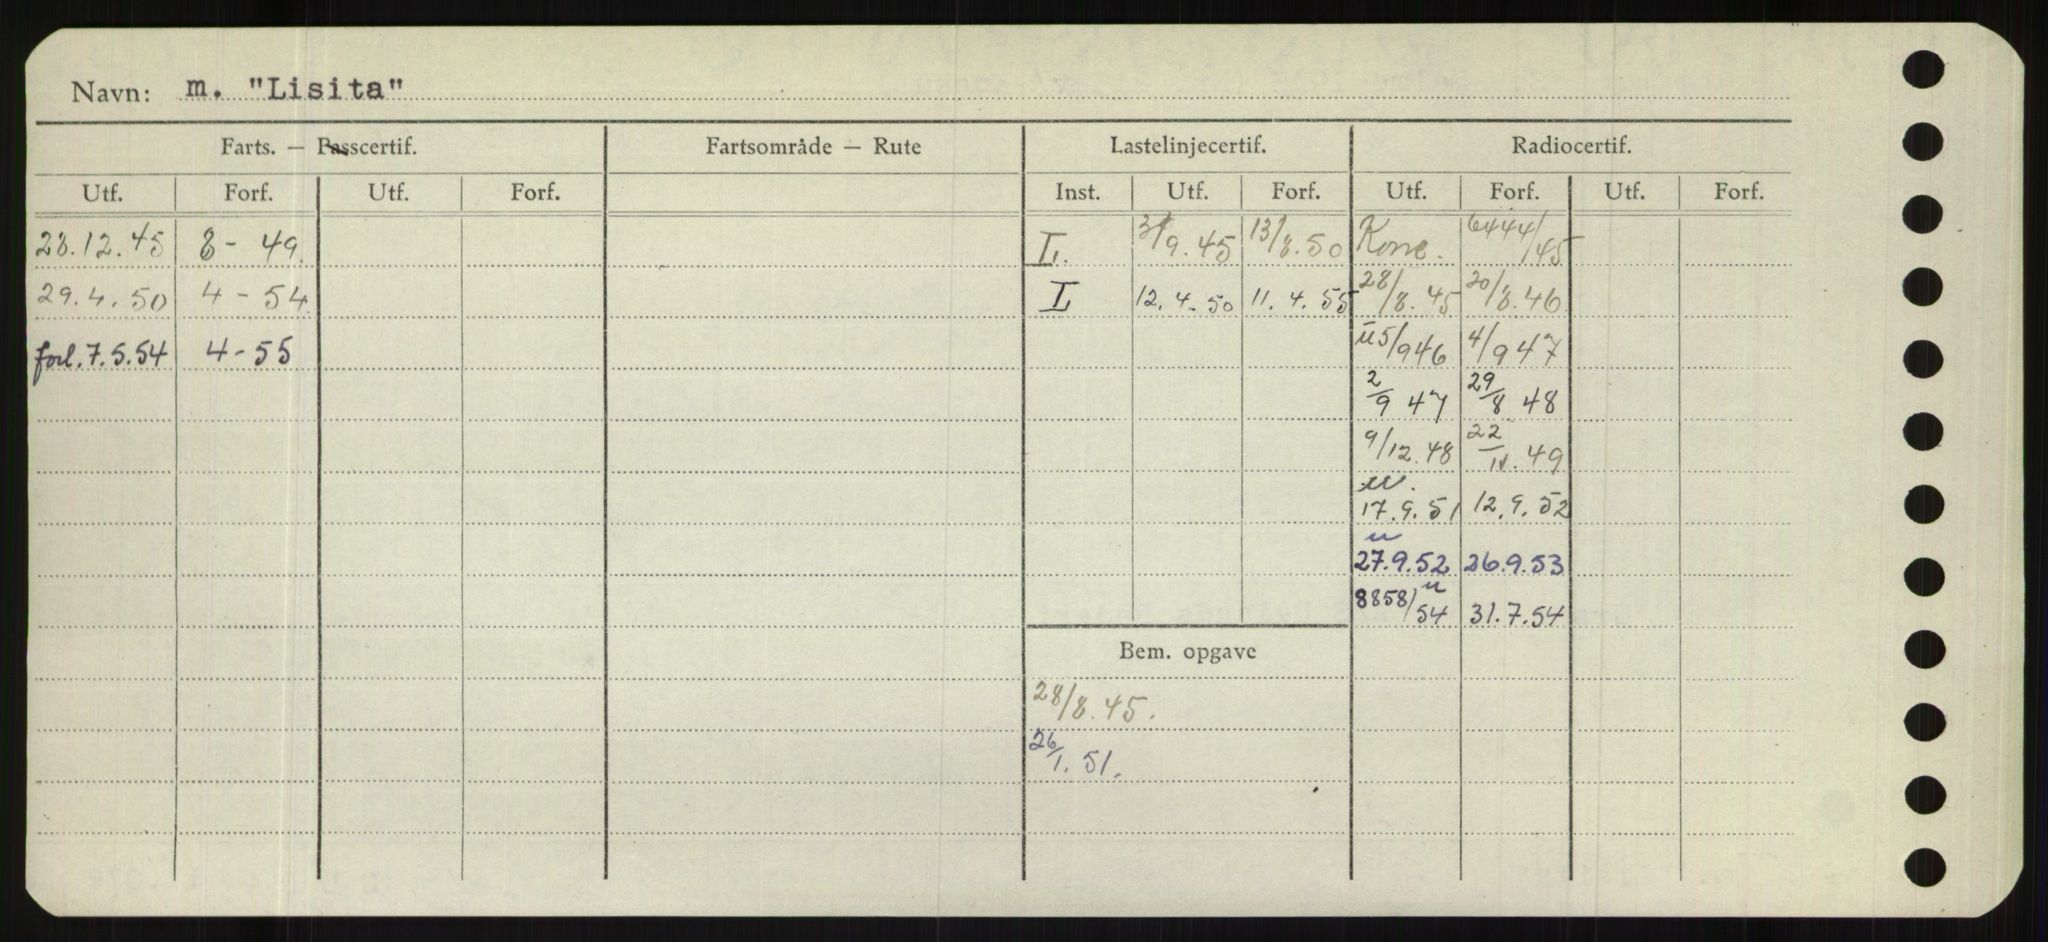 Navn: m. "Lisita"
Farts. — Passcertif. Fartsområde — Rute Lastelinjecertif. Radiocertif.
Utf. Forf. Utf. Forf. Inst. Utf. Forf. Utf. Forf. Utf. Forf.
28.12.45 8 - 49. L. 9.45 13/8.50 Konc. 6444/45
29.4.50 4 - 54 L 12.4.50 11.4.55 28/8.45 20/8.46
forl. 7.5.54 4-55 5/946 4/947
2/9 47 29/8 48
9/12.48 22/11.49
17.9.51 12.9.52
27.9.52 26.9.53
8858/54 31.7.54
Bem. opgave
28/8.45.
26/1.51.